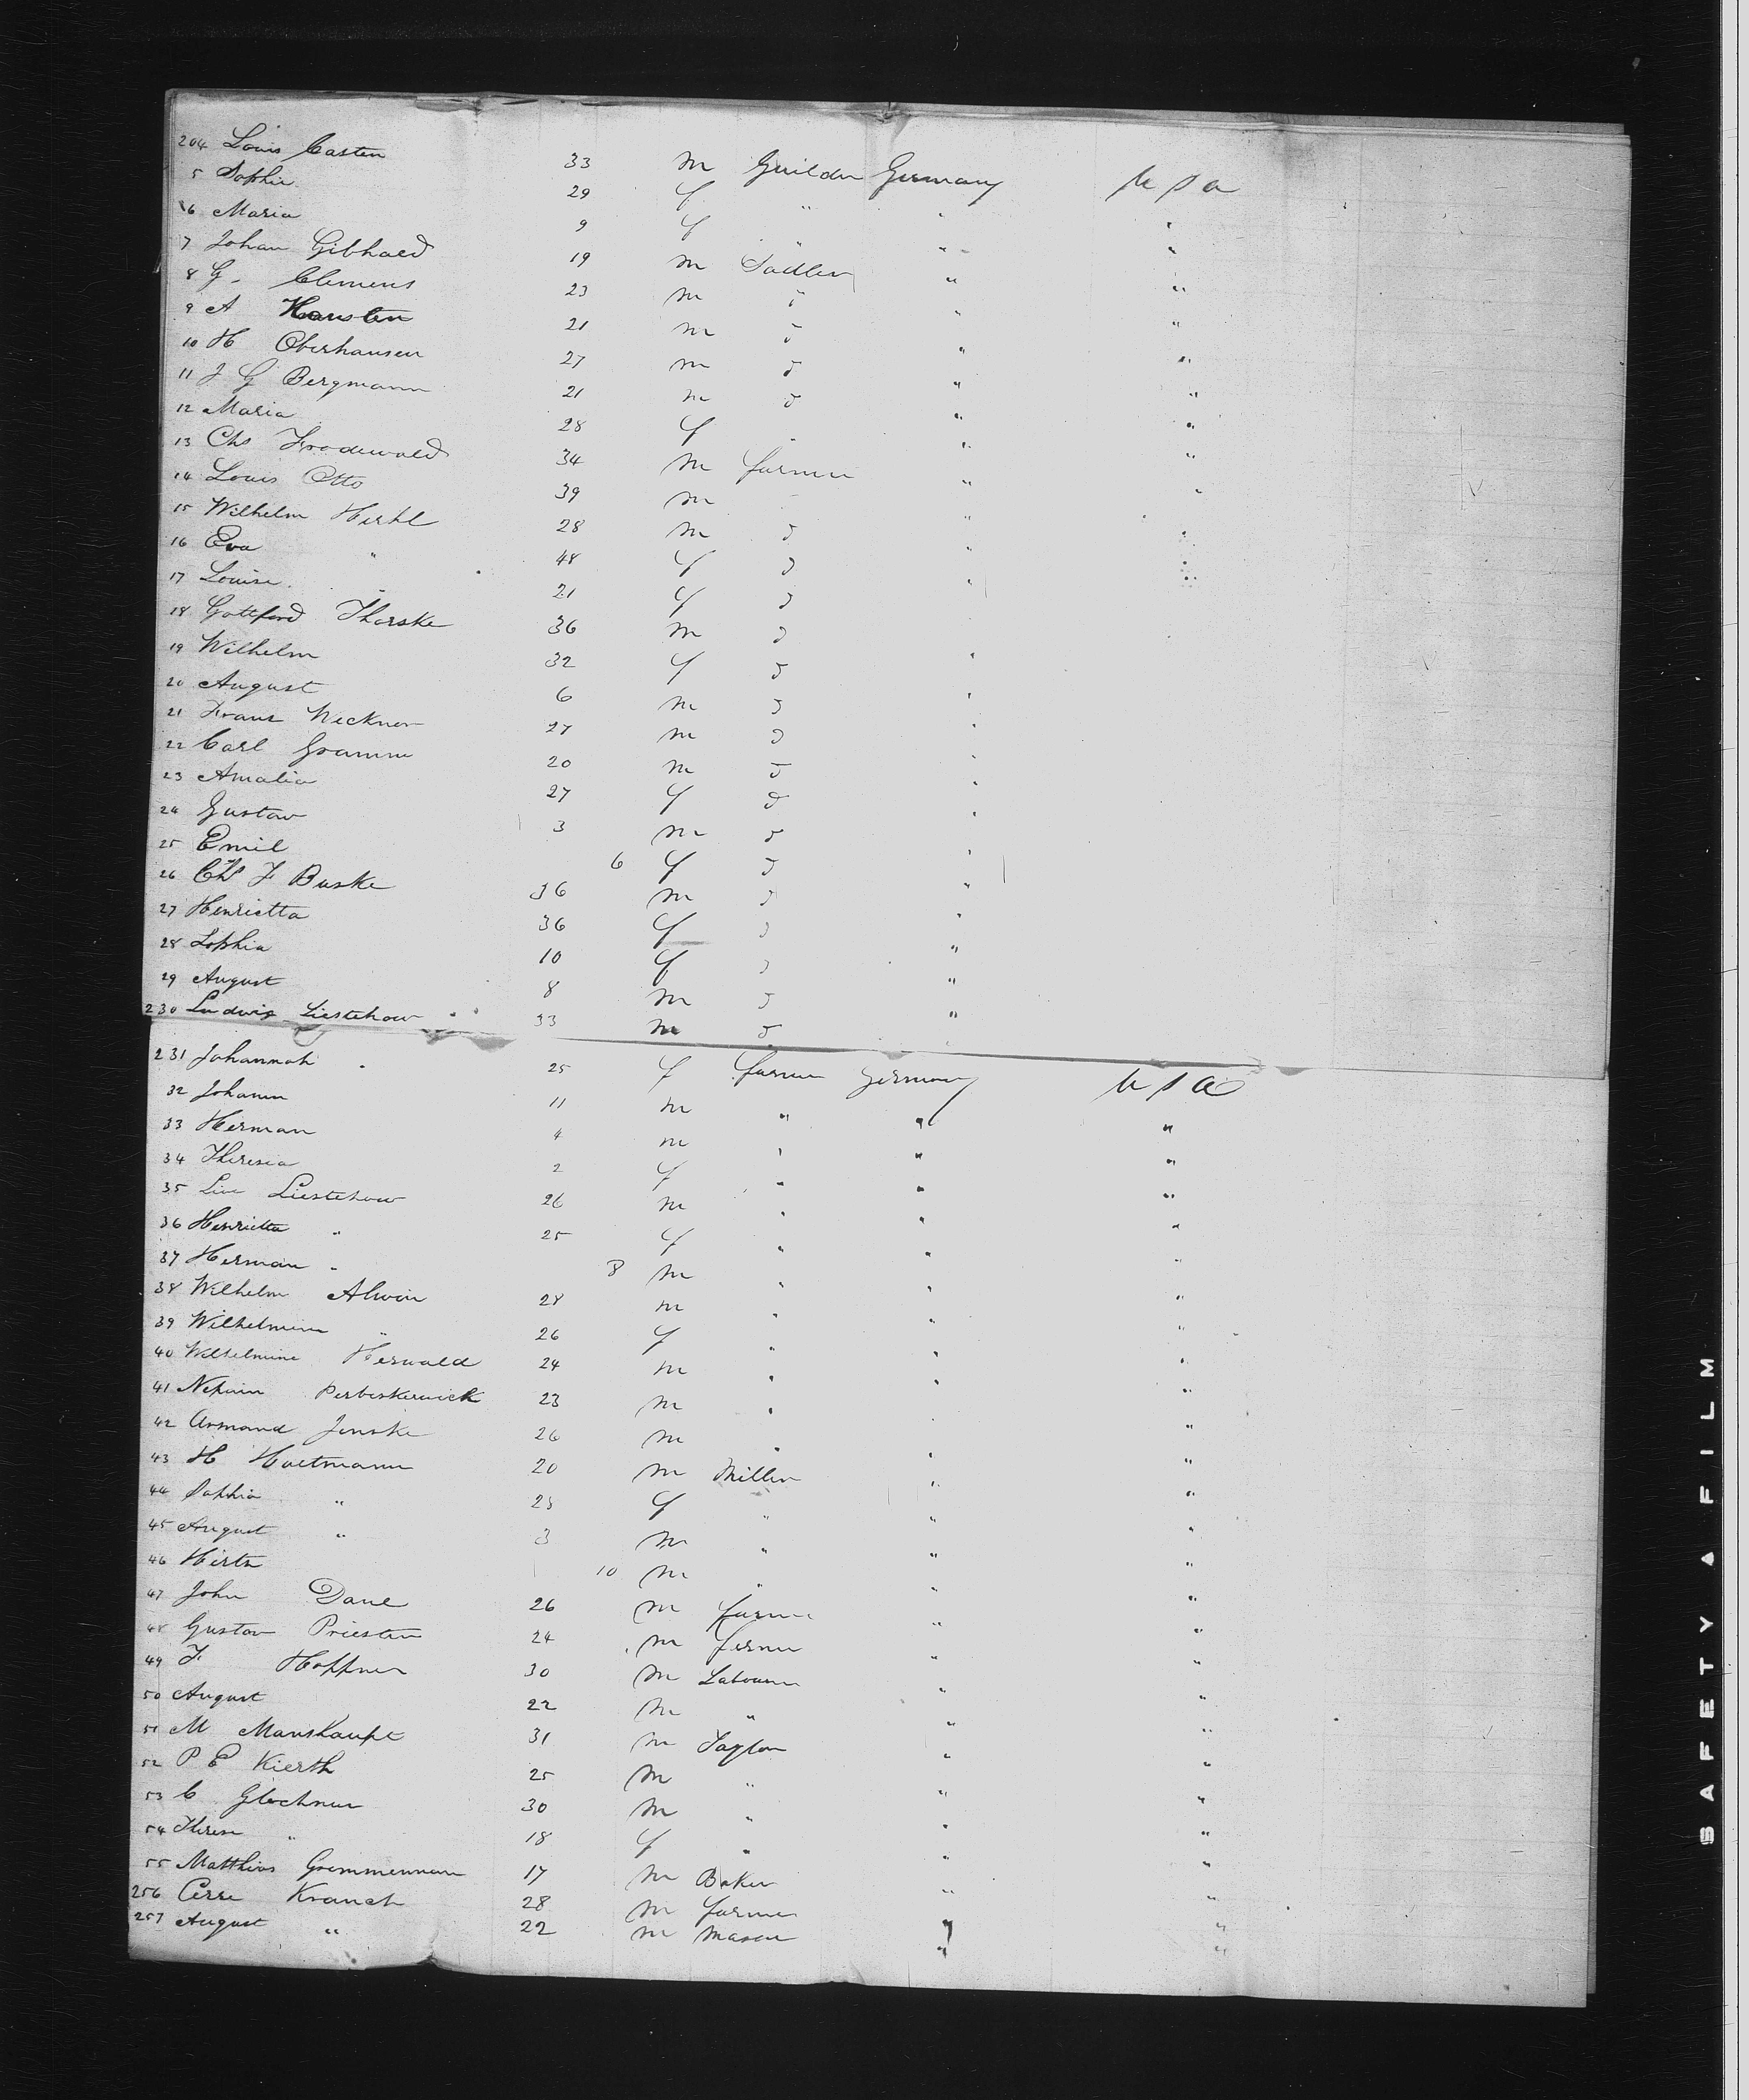 204 Louis Casten 33 m Guilder Germany U S A
5 Sophie 29 f " " "
6 Maria 9 f " " "
7 Johan Gibhard 19 m Sadler " "
8 G. Clemens 23 m d " "
9 A Hansten 21 m d " "
10 H Oberhausen 27 m d " "
11 J G Bergmann 21 m d " "
12 Maria 28 f " "
13 Chs Frodewald 34 m farmer " "
14 Louis Otto 39 m " "
15 Wilhelm Herhl 28 m d " "
16 Eva " 48 f d " "
17 Louise " 21 f d "
18 Gottferd Thorske 36 m d
19 Wilhelm 32 f d "
20 August 6 m d "
21 Franz Weckner 27 m d "
22 Carl Gramm 20 m d "
23 Amalia 27 f d "
24 Gustav 3 m d "
25 Emil 6 f d "
26 Chs F Buske 36 m d "
27 Henrietta 36 f d "
28 Sophia 10 f d "
29 August 8 m d "
230 Ludwig Liestehow 33 m d "
231 Johannah " 25 f farmer Germany U S A
32 Johann 11 m " " "
33 Herman 4 m " " "
34 Theresia 2 f " " "
35 Liestehow 26 m " " "
36 Henrietta " 25 f " " "
37 Herman " 8 m " " "
38 Wilhelm Alwin 28 m " " "
39 Wilhelmine " 26 f " " "
40 Wilhelmine Herwald 24 m " " "
41 Perbeskerwick 23 m " "
42 Armand Jenske 26 m " " "
43 H Hartmann 20 m Miller " "
44 Sophia " 28 f " " "
45 August " 3 m " " "
46 10 m " " "
47 John Dane 26 m farmer " "
48 Gustav Priesten 24 m farmer " "
49 F Hoffner 30 m Labourer " "
50 August 22 m " " "
51 M Manshaupt 31 m Taylor " "
52 P E Kierth 25 m " " "
53 C Glochner 30 m " " "
54 Therese " 18 f " " "
55 Matthias Grommenman 17 m Baker " "
256 Kranch 28 m farmer " "
257 August " 22 m mason " "
SAFETY A FILM